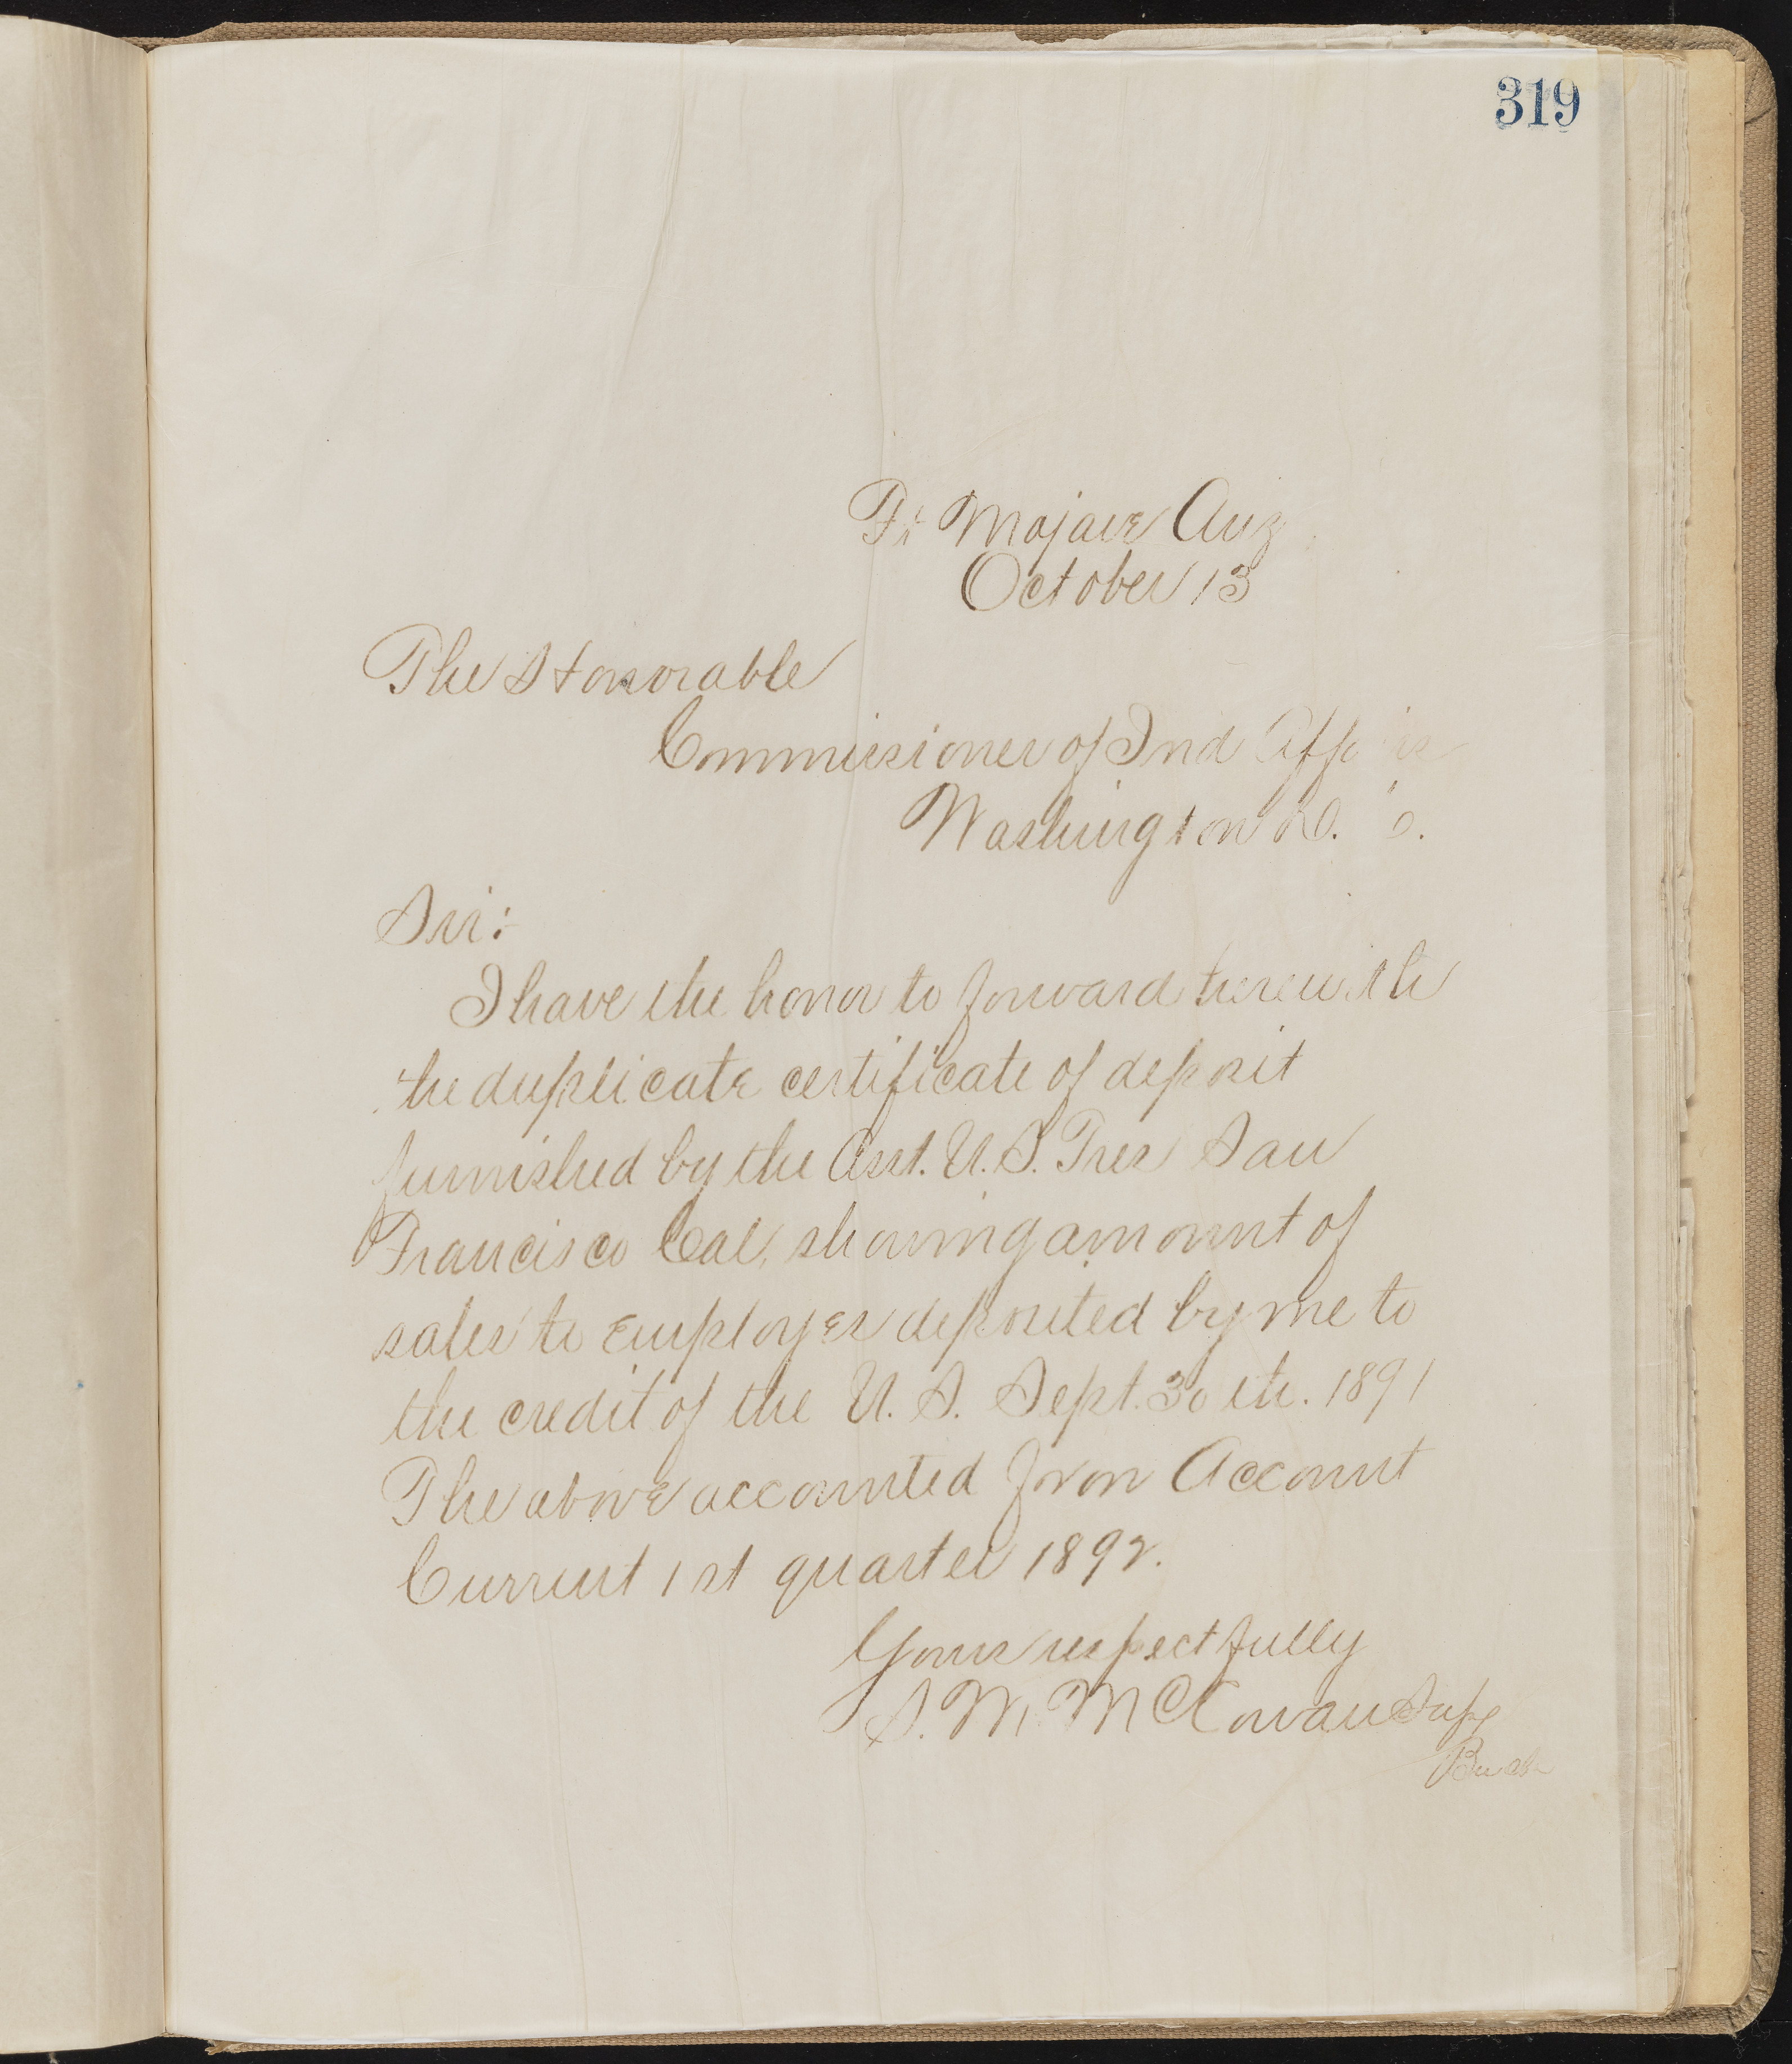 319
Ft Mojave Ariz
October 13
The Honorable
Commissioner of Ind Affairs
Washington D. C.
Sir:
I have the honor to forward herewith
the duplicate certificate of deposit
furnished by the Asst. U. S. Tres San
Francisco Cal, showing amount of
sales to Employes deposited by me to
the credit of the U. S. Sept. 30 th. 1891
The above accounted for on Account
Current 1 st quarter 1892.
Yours respectfully
S. M. McCowan Supt